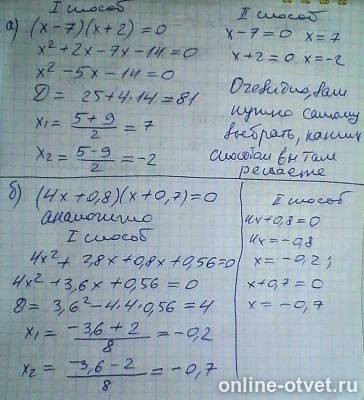 I способ
а) (x-7)(x+2)=0
x²+2x-7x-14=0
x²-5x-14=0
D= 25+4·14=81
x₁= (5+9)/2 = 7
x₂= (5-9)/2 = -2
II способ
x-7=0 x=7
x+2=0 x=-2
Очевидно, вам
нужно самому
выбрать, каким
способом вы там
решаете
б) (4x+0,8)(x+0,7)=0
аналогично
I способ
4x²+2,8x+0,8x+0,56=0
4x²+3,6x+0,56=0
D=3,6²-4·4·0,56=4
x₁= (-3,6+2)/8 = -0,2
x₂= (-3,6-2)/8 = -0,7
II способ
4x+0,8=0
4x=-0,8
x=-0,2;
x+0,7=0
x=-0,7
online-otvet.ru